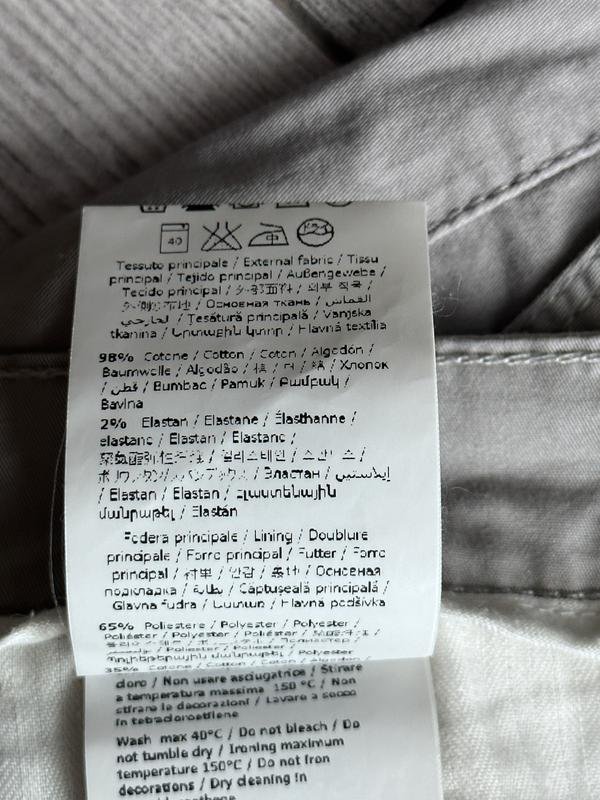 40
Tessuto principale / External fabric / Tissu
principal / Tejido principal / Außengewebe /
Tecido principal / 外部面料 / 외부 직물 /
/ Основная ткань / القماش
الخارجي / Țesătură principală / Vanjska
tkanina / Արտաքին կտոր / Hlavná textília
98% Cotone / Cotton / Coton / Algodón /
Baumwolle / Algodão / 棉 / 면 / 綿 / Хлопок
/ قطن / Bumbac / Pamuk / Բամբակ /
Bavlna
2% Elastan / Elastane / Élasthanne /
elastano / Elastan / Elastano /
/ 엘라스테인 /
/ Эластан / إيلاستين
/ Elastan / Elastan / էլաստենային
մանրաթել / Elastán
Fodera principale / Lining / Doublure
principale / Forro principal / Futter / Forro
principal / 衬里 / 안감 / 裏地 / Основная
подкладка / بطانة / Căptușeală principală /
Glavna Fudra / Աստառ / Hlavná podšívka
65% Poliestere / Polyester / Polyester /
Poliéster / Polyester / Poliéster /
/ Poliester / Poliester /
Պոլիեթերային մանրաթել / Polyester
35% Cotone / Cotton / Coton / Algodón /
cloro / Non usare asciugatrice / Stirare
a temperatura massima 150 °C / Non
stirare le decorazioni / Lavare a secco
in tetracloroetilene
Wash max 40°C / Do not bleach / Do
not tumble dry / Ironing maximum
temperature 150°C / Do not iron
decorations / Dry cleaning in